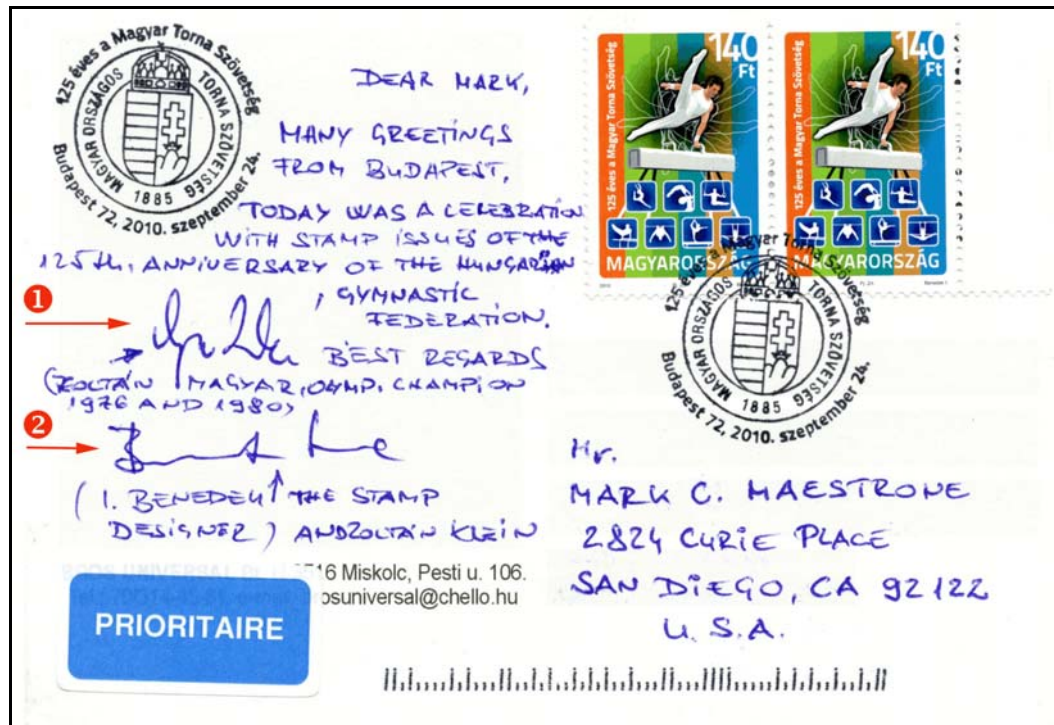 125 éves a Magyar Torna Szövetség
MAGYAR ORSZÁGOS TORNA SZÖVETSÉG
1885
Budapest 72, 2010. szeptember 24.
DEAR MARK,
MANY GREETINGS
FROM BUDAPEST,
TODAY WAS A CELEBRATION
WITH STAMP ISSUES OF THE
125th, ANNIVERSARY OF THE HUNGARIAN
GYMNASTIC
FEDERATION.
1
BEST REGARDS
(ZOLTÁN MAGYAR, OLYMP. CHAMPION
1976 AND 1980)
2
(I. BENEDEK THE STAMP
DESIGNER) AND ZOLTÁN KLEIN
516 Miskolc, Pesti u. 106.
osuniversal@chello.hu
PRIORITAIRE
140
Ft
125 éves a Magyar Torna Szövetség
MAGYARORSZÁG
140
Ft
125 éves a Magyar Torna Szövetség
MAGYARORSZÁG
125 éves a Magyar Torna Szövetség
MAGYAR ORSZÁGOS TORNA SZÖVETSÉG
1885
Budapest 72, 2010. szeptember 24.
Hr.
MARK C. MAESTRONE
2824 CURIE PLACE
SAN DIEGO, CA 92122
U.S.A.